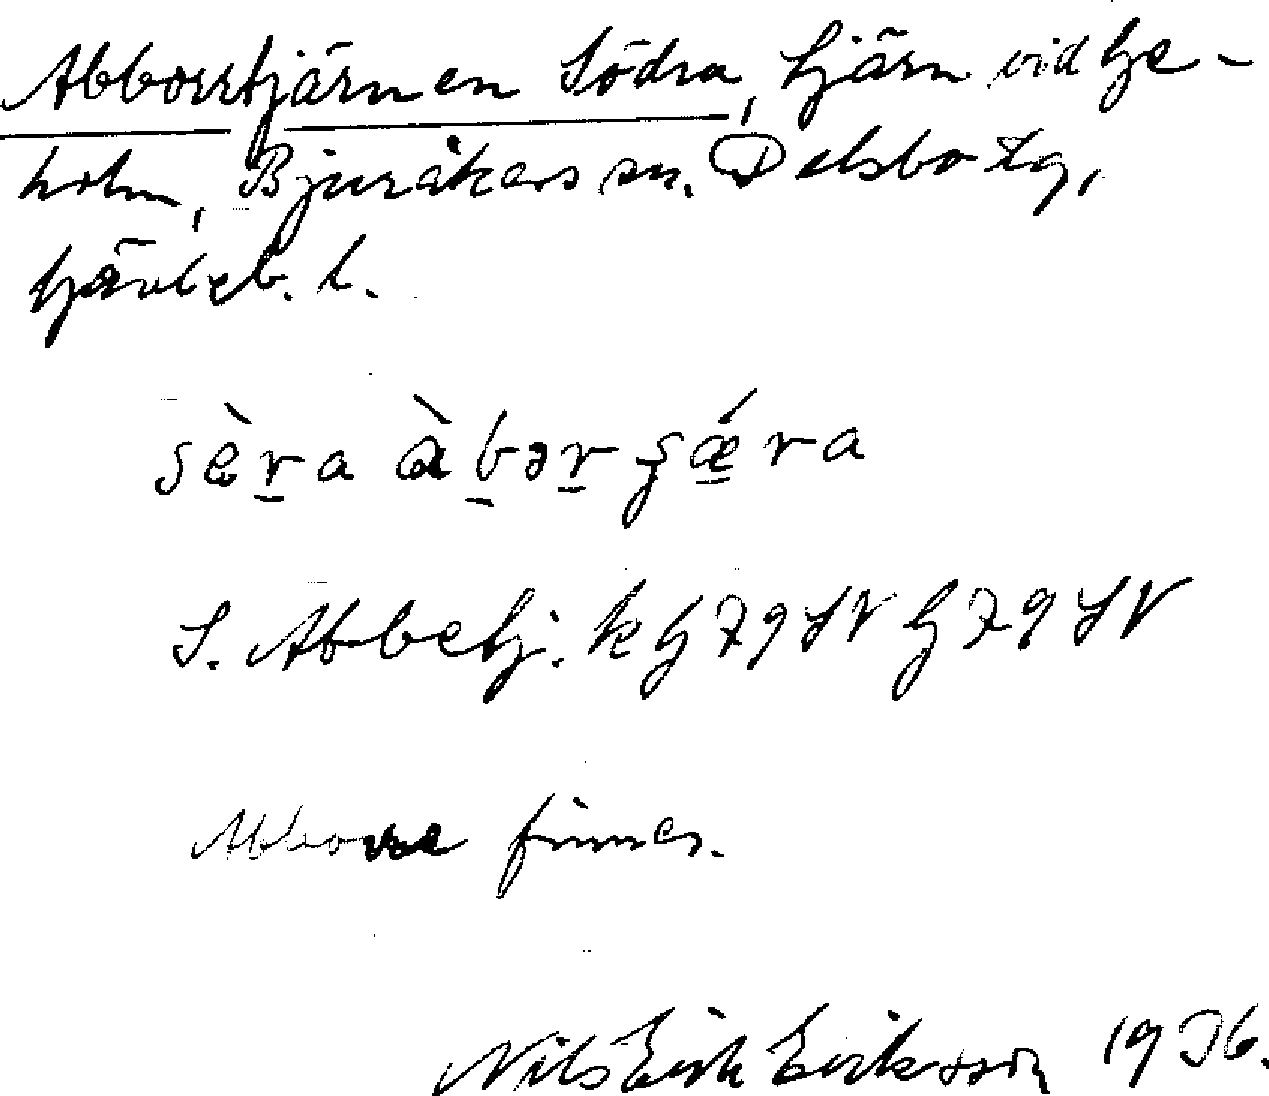 Abborrtjärnen Södra, tjärn vid Ge-
holm, Bjuråkers sn. Delsbo tg,
Gävleb. l.
sèra àbər ʂǽra
S. Abbetj. k G 79 SV G 79 SV
Abborre finnes.
Nils Erik Eriksson 1936.